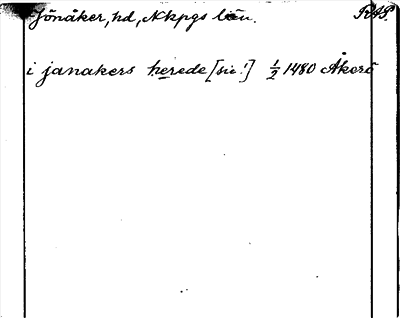 Jönåker, hd, Nkpgs län. RAP.
i janakers herede [sic!] 1/2 1480 Åkerö